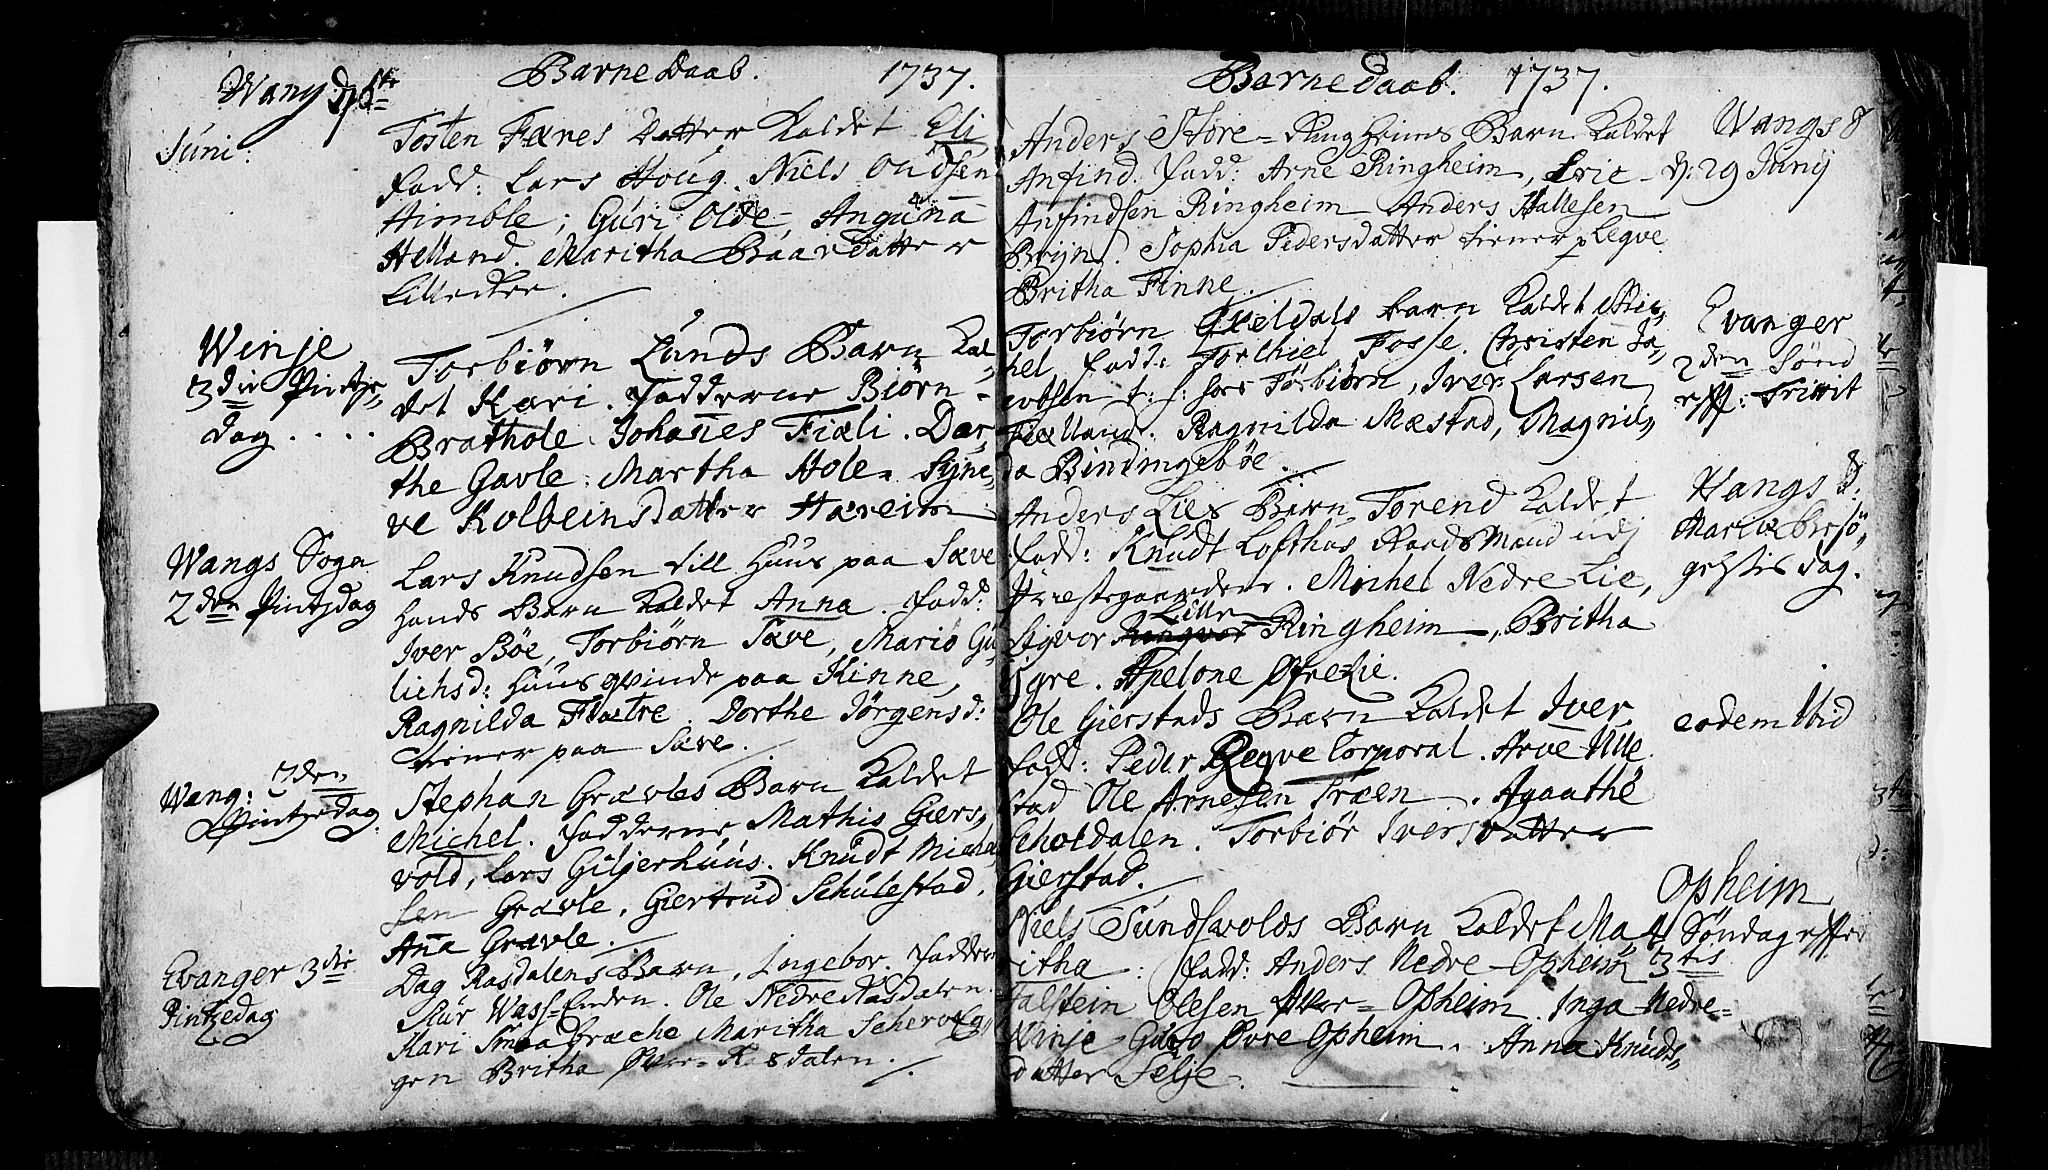 Barne Daab. 1737.
Wang d. 7de
Juni:
Tosten Færes Datter kaldet Eli
Fadd: Lars Houg. Niels Oudsen
Himble; Guri Olde, Anguna
Helland. Maritha Baardatter
Lilleckre.
Winje
3die Pintze
dag....
Torbiörn Lunds Barn kal
det Kari. Fadderne Biörn
Brathole. Johanes Fiæli. Dor,,
the Gavle. Martha Hole. Syne,,
ve Kolbeinsdatter Hæreim
Wangs Sogn
2den Pintzdag
Lars Knudsen till huus paa Sæve
hands Barn kaldet Anna. Fadd:
Iver Böe, Torbiörn Sæve, Mario Gu,,
lichsd: huusqvinde paa Kinne,
Ragnilda Flatre. Dorthe Jörgensd:
tiener paa Sæve.
Wang: 2den
Pintzedag.
Stephan Grævles Barn kaldet
Michel. Fadderne Mathis Giers,,
vold, Lars Giljerhuus. Knudt Michel
sen Grævle. Giertrud Schulestad.
Anna Grævle.
Evanger 3die
Pintzedag
Dag Rasdalens Barn, Ingebor. Fadder
Siur Wass-Enden. Ole Nedre Rasdalen.
Kari Smaabræche Maritha Scherveg,,
gen Britha Øvre-Rasdalen.
Barne daab. 1737.
Anders Störe-Ringheims Barn kaldet
Anfind. Fadd: Arne Ringheim, Eric
Anfindsen Ringheim Anders Hallesen
Bryn. Sophia Pedersdatter tiener p Regve
Britha Finne.
Wangs
d: 29 Junij
Torbiörn Qveldals barn kaldet Mi,,
hel, Fadd: Torchiel Fosse. Christen Ja,,
cobsen t: h: hos Torbiörn, Iver Larsen
Fiælland. Ragnilda Mæstad, Magnil,,
da Bindingeböe.
Evanger
2den Sönd
eff: Trinit
Anders Lies Barn Torend kaldet
Fadd: Knudt Lofthus Raadsmand udj
Præstegaardene. Michel Nedre Lie,
Sigvor Lille Ringheim, Britha
Ygre. Apelone Øfre Lie.
Wangs d:
Mariæ besö,,
gelsis dag.
Ole Gierstads Barn kaldet Iver.
Fadd: Peder Regve Corporal. Arve Ulle
stad Ole Arnesen Træen. Agaathe
Scholdalen. Torbiör Iversdatter
Gierstad.
eodem ibid
Niels Sundsvolds Barn kaldet Ma,,
ritha: Fadd: Anders Nedre-Opheim
Halstein Olesen Øvre-Opheim. Inga Nedre-
Winje Guro Øvre Opheim. Anna Knuds,,
datter Selje.
Opheim
4 Söndag effter
3tis